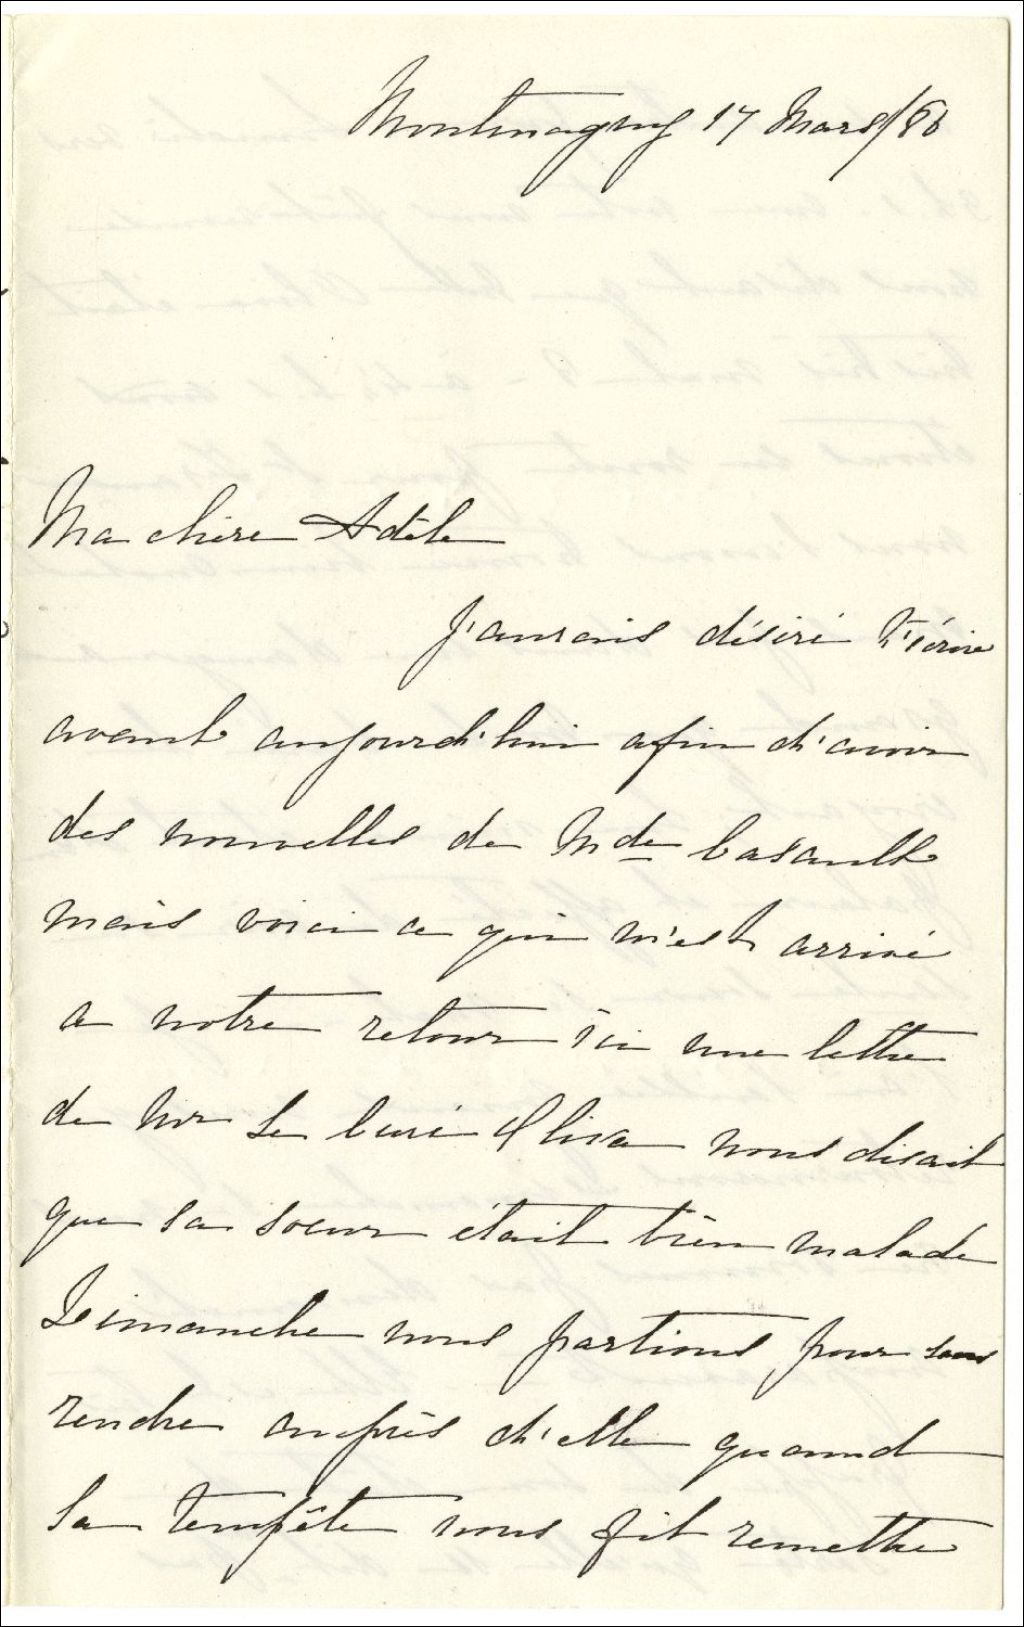 Montmagny 17 Mars/86
Ma chère Adèle
J'aurais désiré t'écrire
avant aujourd'hui afin d'avoir
des nouvelles de Mde Casault
mais voici ce qui m'est arrivé
a notre retour ici une lettre
de Mr Le Curé nous disait
que sa soeur était bien malade
Dimanche nous partions pour
rendre auprès d'elle quand
la tempête nous fit remettre